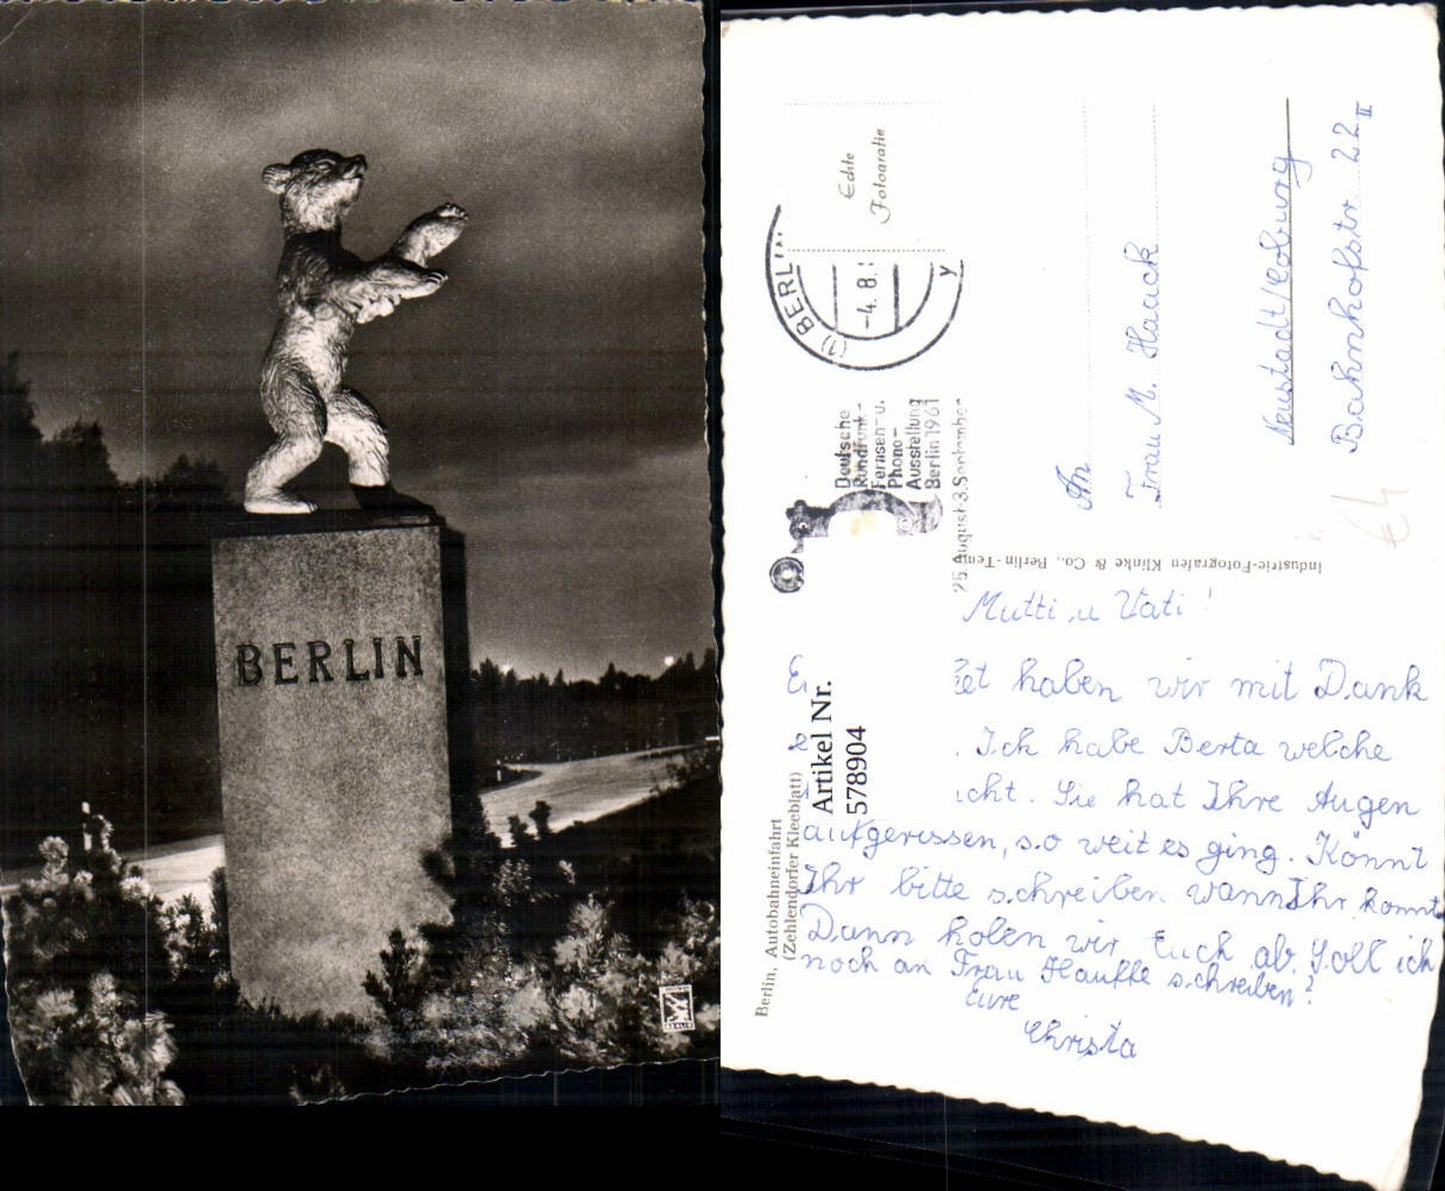 BERLIN
BERLIN
Echte
Fotografie
(1) BERLIN
-4. 8.
y
Deutsche
Rundfunk-
Fernseh-u.
Phono-
Ausstellung
Berlin 1961
25. August-3. September
An
Frau M. Haack
Neustadt/Coburg
Bahnhofstr 22 II
Industrie-Fotografen Klinke & Co., Berlin-Tem
Mutti u Vati!
et haben wir mit Dank
. Ich habe Berta welche
icht. Sie hat Ihre Augen
aufgerissen, so weit es ging. Könnt
Ihr bitte schreiben wann Ihr kommt
Dann holen wir Euch ab. Soll ich
noch an Frau Hauffe schreiben?
Eure
Christa
Artikel Nr.
578904
Berlin, Autobahneinfahrt
(Zehlendorfer Kleeblatt)